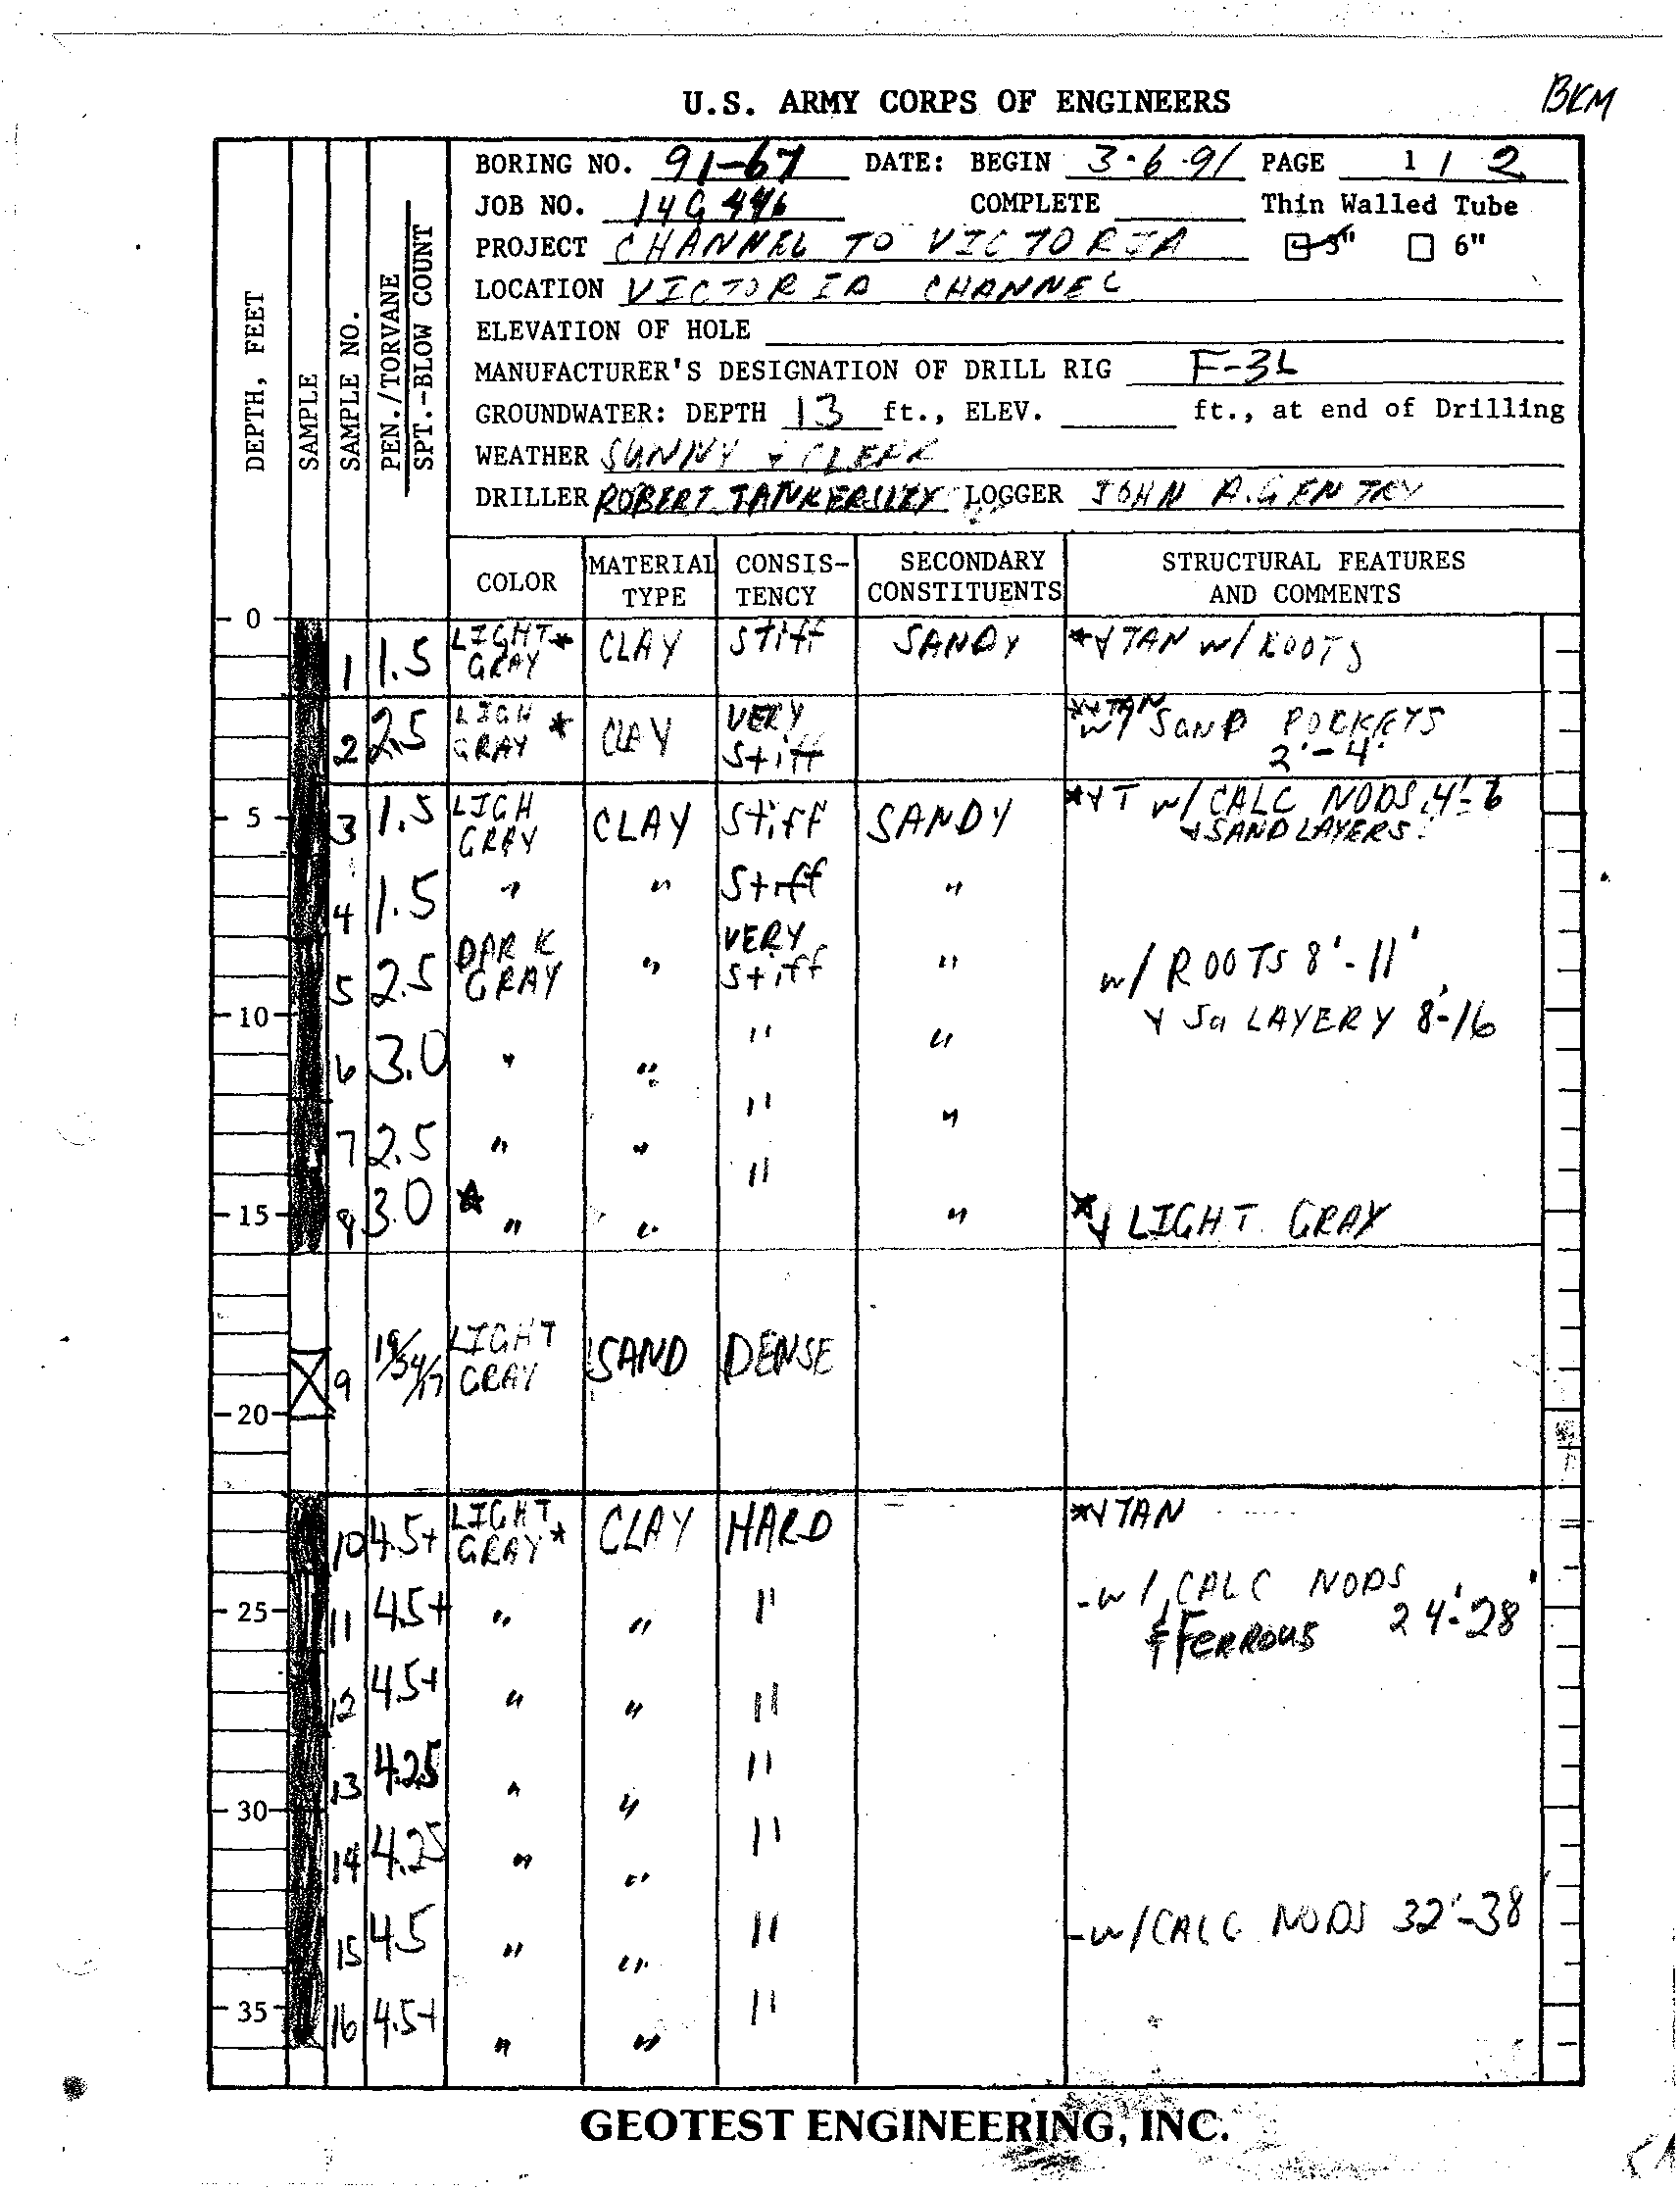 U.S. ARMY CORPS OF ENGINEERS
BKM
BORING NO. 91-67 DATE: BEGIN 3-6-91 PAGE 1 / 2
JOB NO. 14G446 COMPLETE Thin Walled Tube
PROJECT CHANNEL TO VICTORIA 3" 6"
LOCATION VICTORIA CHANNEL
ELEVATION OF HOLE
MANUFACTURER'S DESIGNATION OF DRILL RIG F-3L
GROUNDWATER: DEPTH 13 ft., ELEV. ft., at end of Drilling
WEATHER SUNNY & CLEAR
DRILLER ROBERT TANKERSLEY LOGGER JOHN A. GENTRY
DEPTH, FEET
SAMPLE
SAMPLE NO.
PEN./TORVANE
SPT.-BLOW COUNT
COLOR MATERIAL TYPE CONSIS-TENCY SECONDARY CONSTITUENTS STRUCTURAL FEATURES AND COMMENTS
0
1 1.5 LIGHT* GRAY CLAY Stiff SANDY *& TAN w/ ROOTS
2 2.5 LIGH * GRAY CLAY VERY Stiff *& TAN w/ SAND POCKETS 2'-4'
5 3 1.5 LIGH GRAY CLAY Stiff SANDY *& T w/ CALC NODS 4'-6
& SAND LAYERS
4 1.5 " " Stiff "
5 2.5 DARK GRAY " VERY Stiff " w/ ROOTS 8'-11'
10 & Sa LAYERY 8'-16
6 3.0 " " " "
7 2.5 " " " "
15 8 3.0 * " " " " *& LIGHT GRAY
9 19/34/17 LIGHT GRAY SAND DENSE
20
10 4.5+ LIGHT GRAY* CLAY HARD *& TAN
25 11 4.5+ " " " -w/ CALC NODS
& FERROUS 24'-28'
12 4.5+ " " "
13 4.25 " " "
30
14 4.25 " " "
15 4.5 " " " -w/ CALC NODS 32'-38
35 16 4.5+ " " "
GEOTEST ENGINEERING, INC.